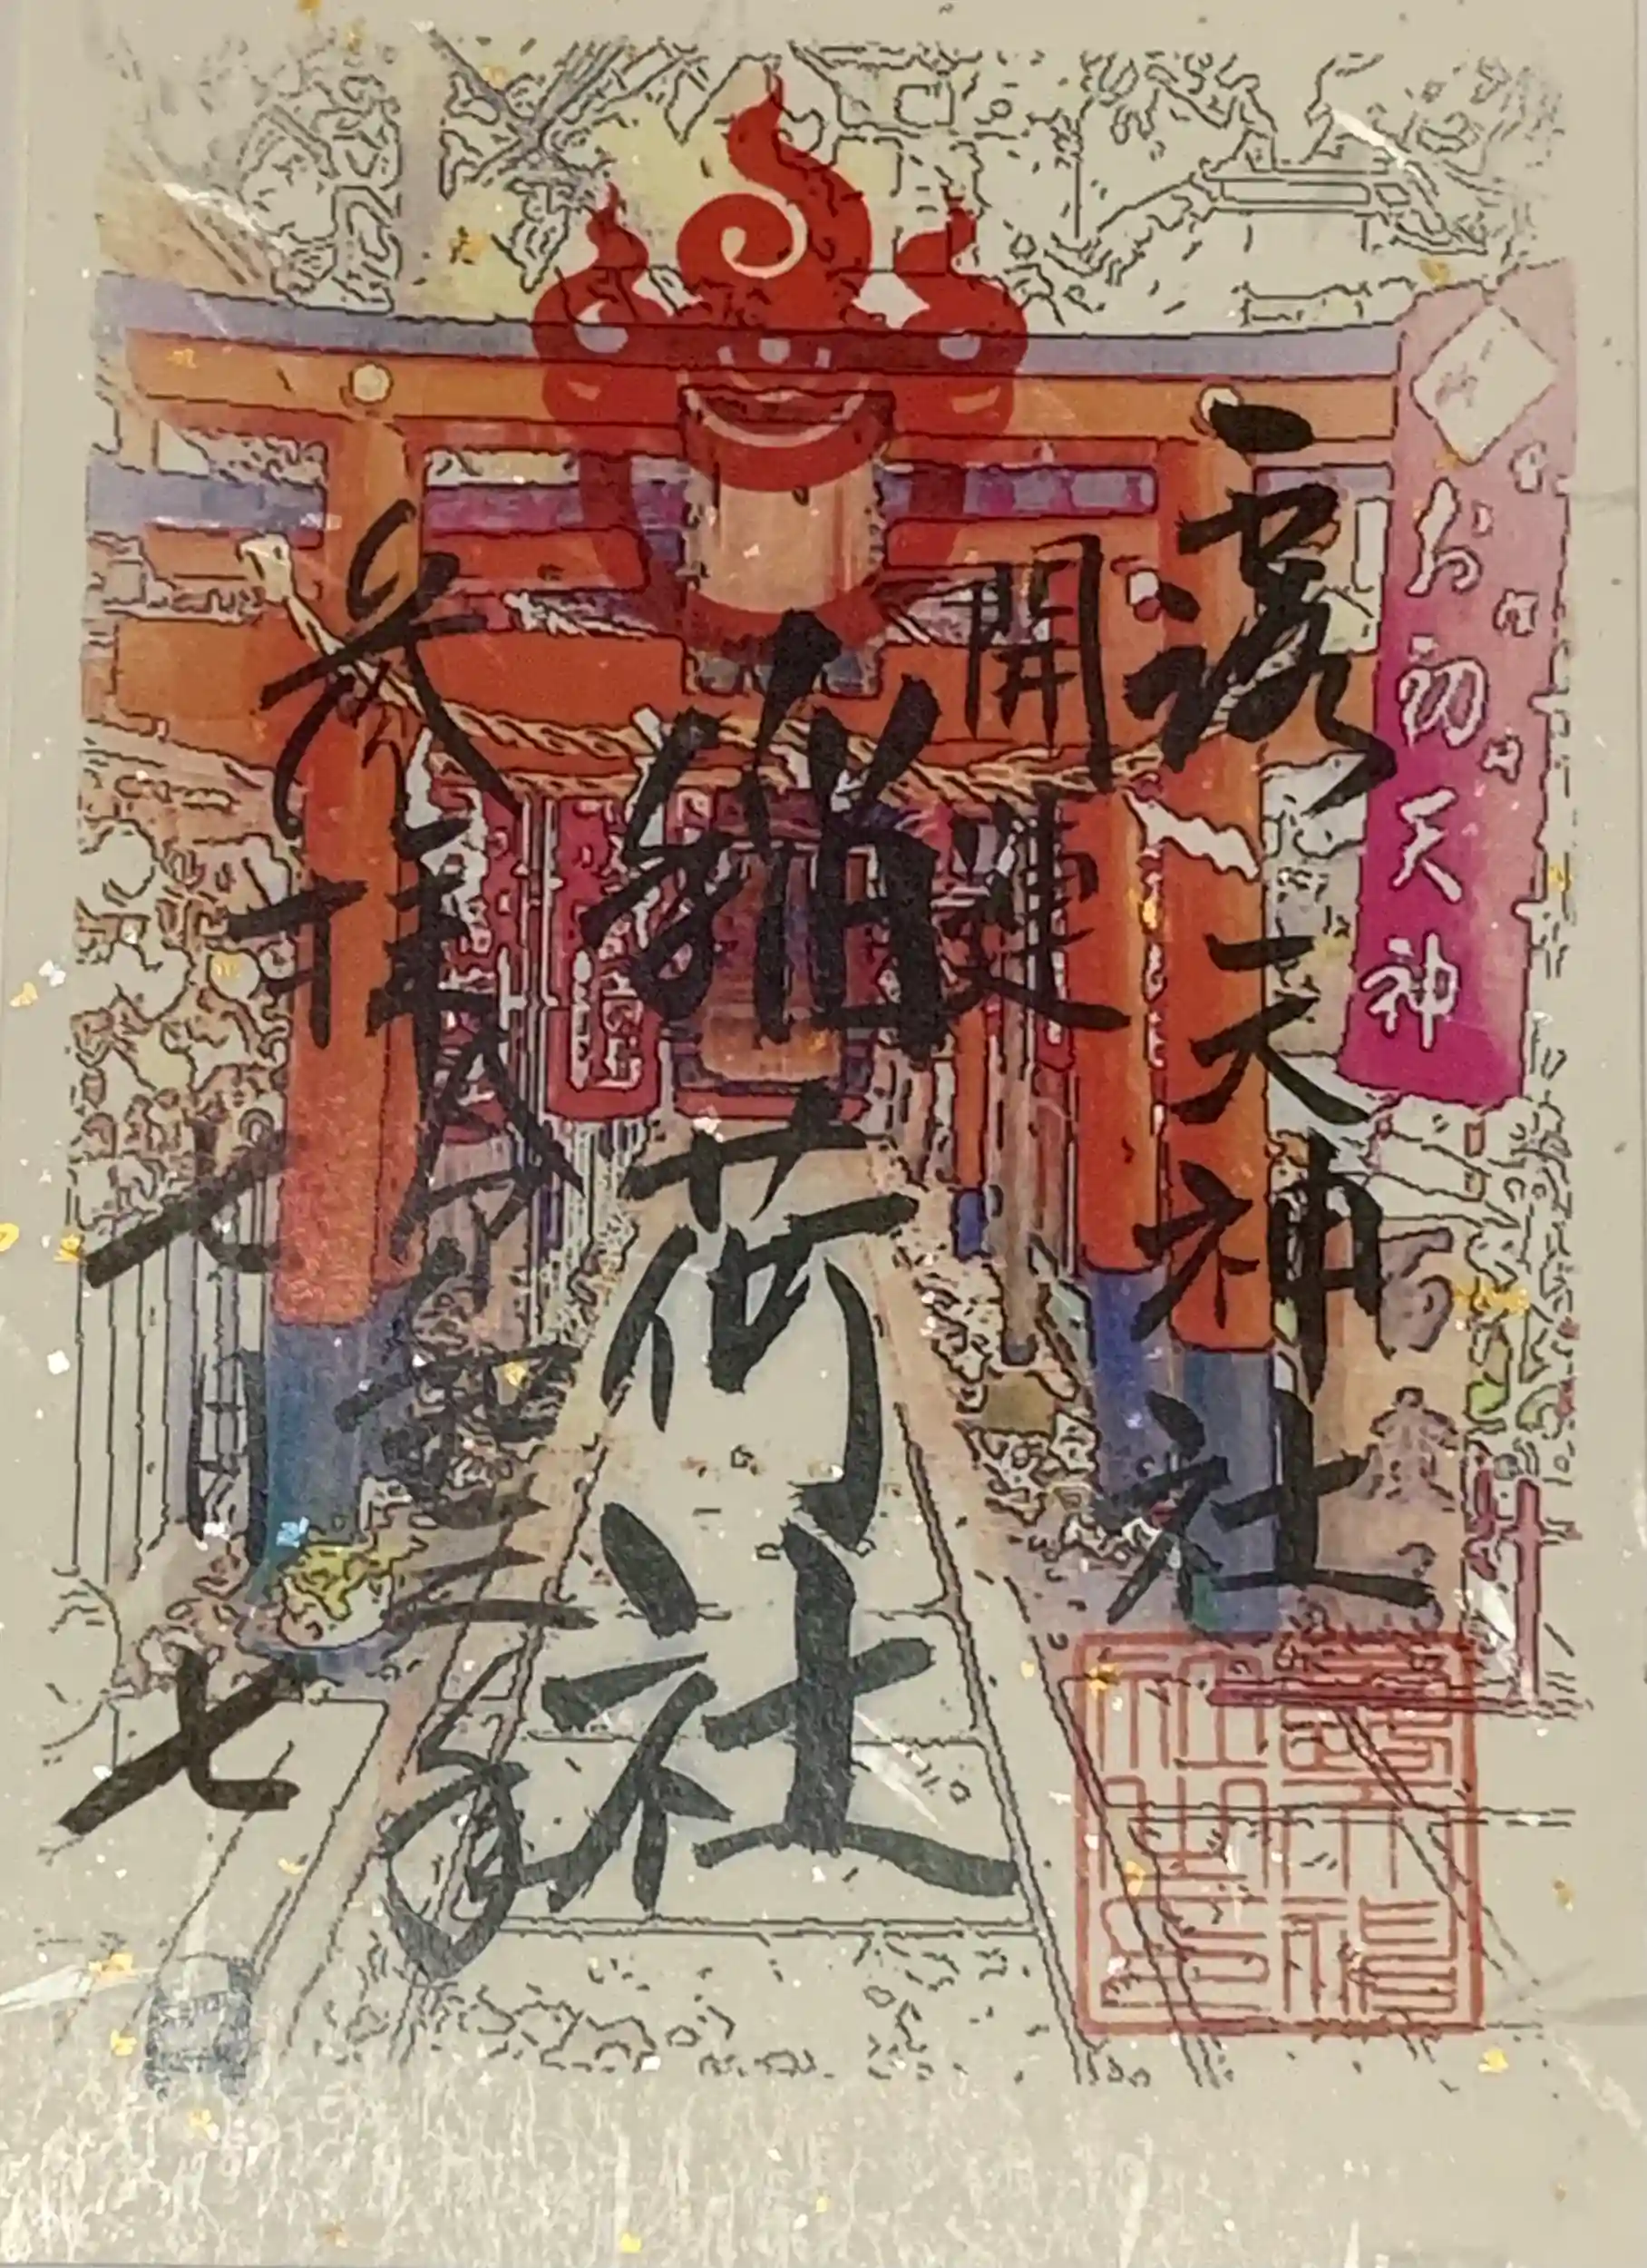 お初天神
露天神社
開運
稲荷社
参拝
令和三年
七月七